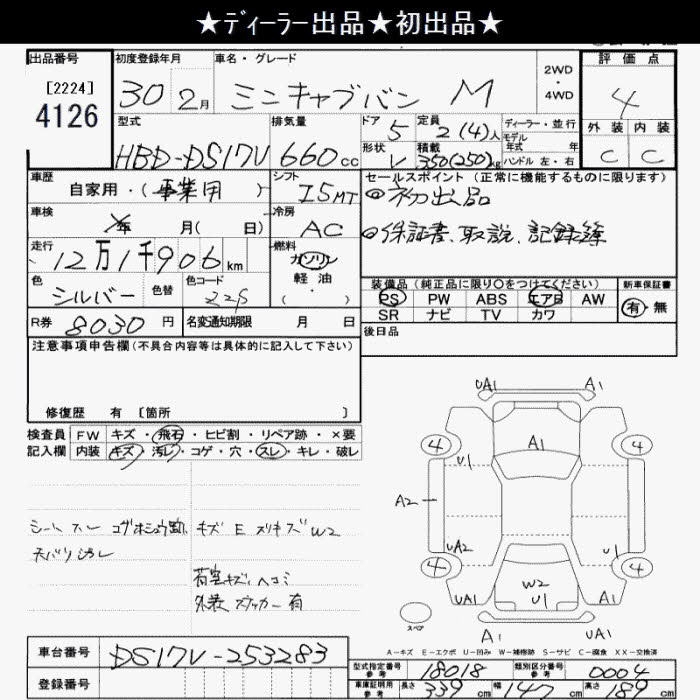 ★ディーラー出品★初出品★
出品番号
[2224]
4126
初度登録年月
30 2月
車名・グレード
ミニキャブバン M
2WD
・
4WD
評価点
4
外装 内装
C C
型式
HBD-DS17V
排気量
660cc
ドア 5
定員 2(4)人
形状 V
積載 350(250)kg
ディーラー・並行
モデル
年式 年
ハンドル 左・右
車歴
自家用・(事業用)
シフト
I5MT
セールスポイント(正常に機能するものに限ります)
初出品
保証書、取説、記録簿
車検
年 月( 日)
冷房
AC
走行
12万1千906km
燃料
ガソリン
軽油
( ・ )
色
シルバー
色替
色コード
装備品(純正品に限り○をつけてください)
PS PW ABS エアB AW
SR ナビ TV カワ
新車保証書
有・無
R券 8030円
名変通知期限 月 日
後日品
注意事項申告欄(不具合内容等は具体的に記入して下さい)
修復歴 有 [箇所 ]
検査員
記入欄
FW キズ・飛石・ヒビ割・リペア跡・×要
内装 キズ・汚レ・コゲ・穴・スレ・キレ・破レ
シートスレ
キズ E スリキズ W2
荷室キズ、ヘコミ
外装 ステッカー有
UA1 A1
4 4
A1
U1
A2
UA2 U1
4 4
W2
U1
UA1 UA1
A1 U1
スペア
A-キズ E-エクボ U-凹み W-補修跡 S-サビ C-腐食 XX-交換済
車台番号
DS17V-253283
登録番号
型式指定番号
参考
18018
類別区分番号
参考
0004
車庫証明用
参考
長さ 339cm 幅 147cm 高さ 189cm